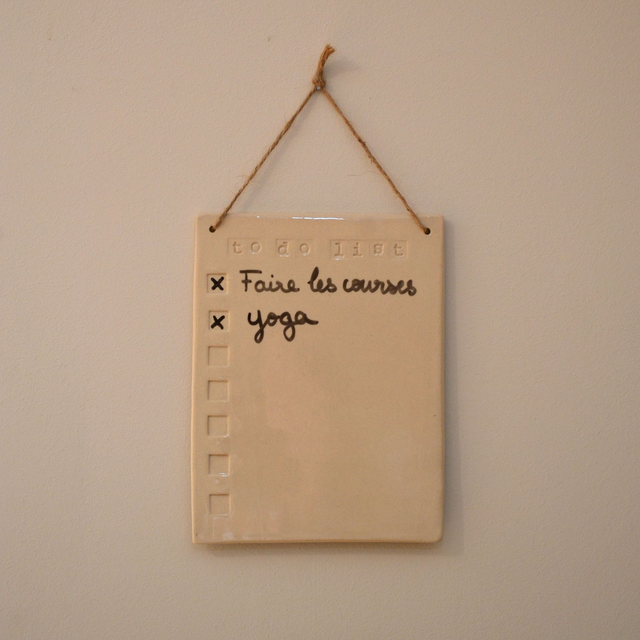 to do list
x Faire les courses
x yoga